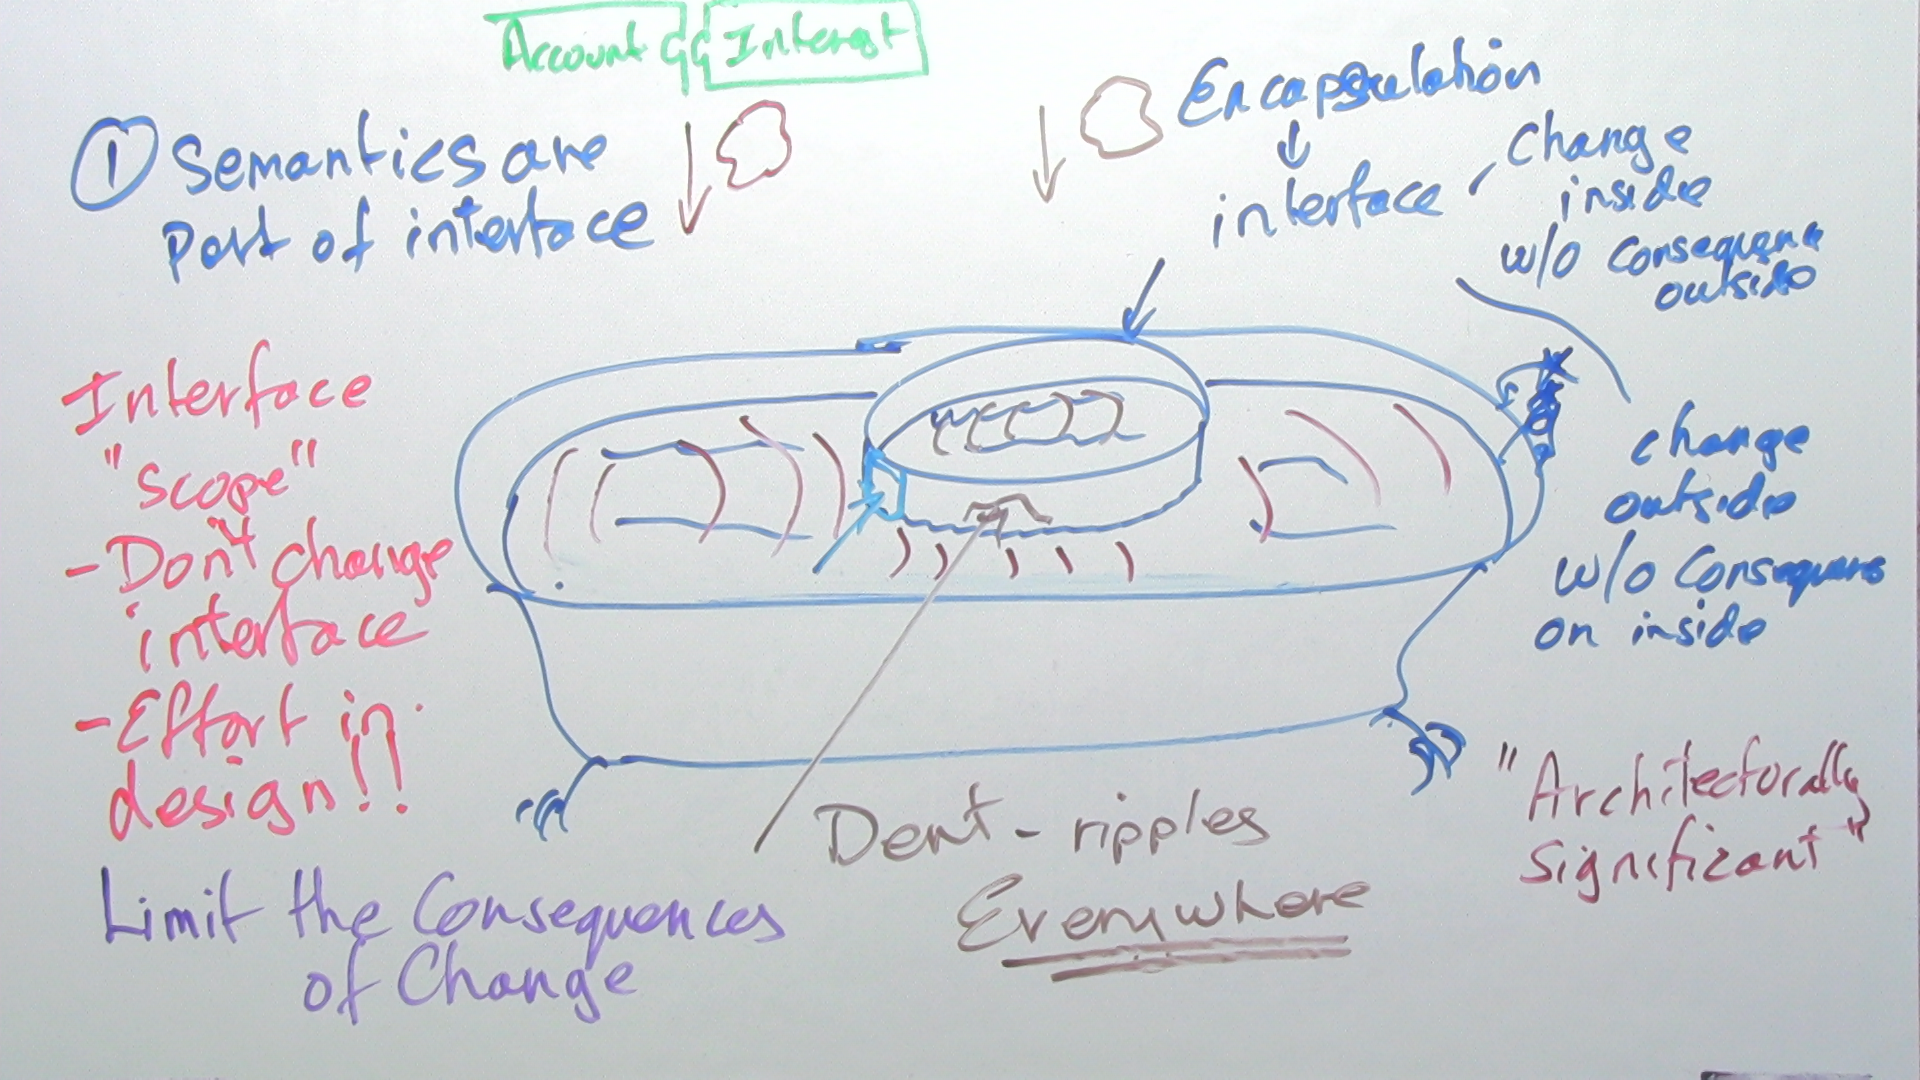 Account
Interest
① Semantics are
Part of interface
Encapsulation
interface
Change
inside
w/o Consequence
outside
Interface
"Scope"
- Don't change
interface
- Effort in
design!!
change
outside
w/o Consequens
on inside
"Architecturally
Significant"
Dent - ripples
Everywhere
Limit the Consequences
of Change